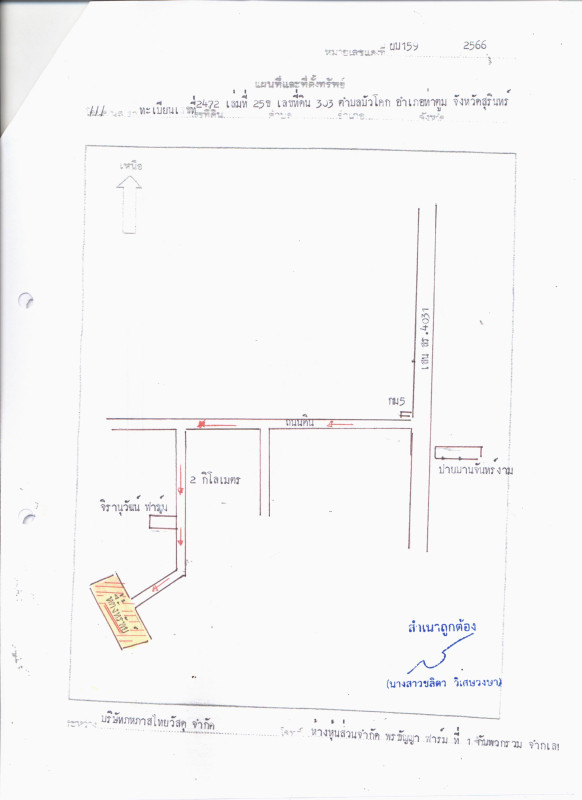 หมายเลขแดงที่ ผบ159 2566
แผนที่และที่ตั้งทรัพย์
ทะเบียนเลขที่2472 เล่มที่ 25ข เลขที่ดิน 303 ตำบลบัวโคก อำเภอท่าตูม จังหวัดสุรินทร์
เลขที่ดิน ตำบล อำเภอ จังหวัด
เหนือ
เส้น สร.4031
กม5
ถนนดิน
ป้ายบ้านจันทร์งาม
2 กิโลเมตร
จิรานุวัฒน์ ฟาร์ม
ที่ตั้งทรัพย์
สำเนาถูกต้อง
(นางสาวชลิตา วิเศษวงษา)
ระหว่าง บริษัทภาสไทยวัสดุ จำกัด โจทก์ ห้างหุ้นส่วนจำกัด พรธัญญา ฟาร์ม ที่ 1 กับพวกรวม จำเลย